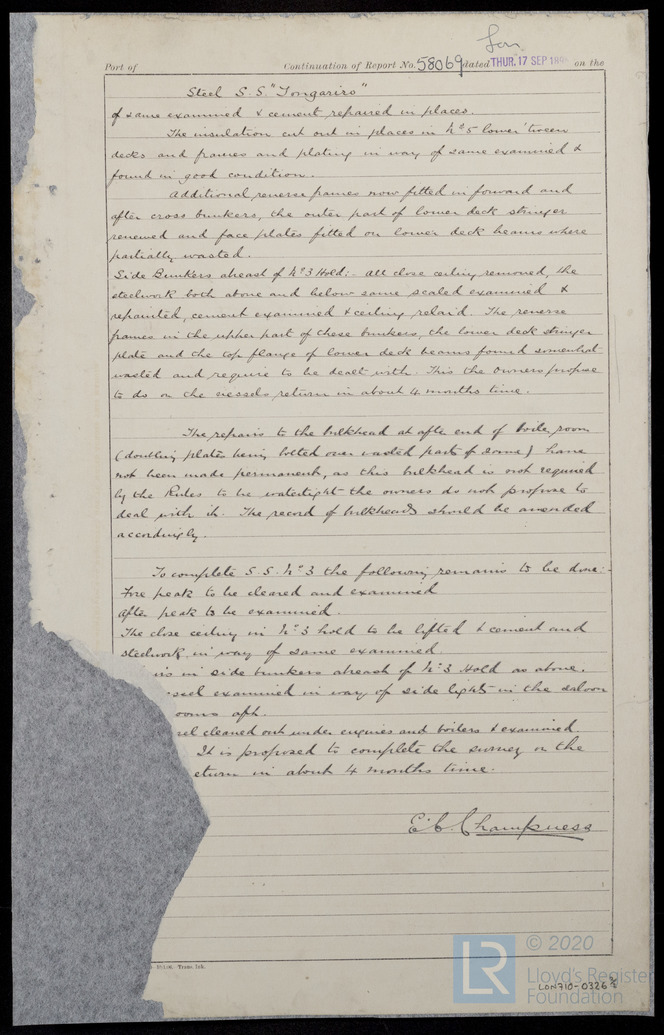 Lon
Port of Continuation of Report No. 58069 dated THUR. 17 SEP 189 on the
Steel S S. "Tongariro"
of same examined & cement repaired in places.
The insulation cut out in places in No 5 lower 'tween
decks and frames and plating in way of same examined &
found in good condition.
Additional reverse frames now fitted in forward and
after cross bunkers, the outer part of lower deck stringer
renewed and face plates fitted on lower deck beams where
partially wasted.
Side Bunkers abreast of No 3 Hold:- All close ceiling removed, the
steelwork both above and below same scaled examined &
repainted, cement examined & ceiling relaid. The reverse
frames in the upper part of these bunkers, the lower deck stringer
plate and the top flange of lower deck beams found somewhat
wasted and require to be dealt with. This the Owners propose
to do on the vessels return in about 4 months time.
The repairs to the bulkhead at after end of boiler room
(doubling plates being bolted over wasted parts of same) have
not been made permanent, as this bulkhead is not required
by the Rules to be watertight the owners do not propose to
deal with it. The record of bulkheads should be amended
accordingly.
To complete S.S. No 3 the following remains to be done:-
Fore peak to be cleared and examined
After peak to be examined.
The close ceiling in No 3 hold to be lifted & cement and
steelwork in way of same examined
irs in side bunkers abreast of No 3 Hold as above.
ssel examined in way of side lights in the saloon
ooms aft.
sel cleaned out under engines and boilers & examined.
It is proposed to complete the survey on the
eturn in about 4 months time.
E. C. Champness
Trans. Ink.
LR © 2020
Lloyd's Register
Foundation
LON710-0326